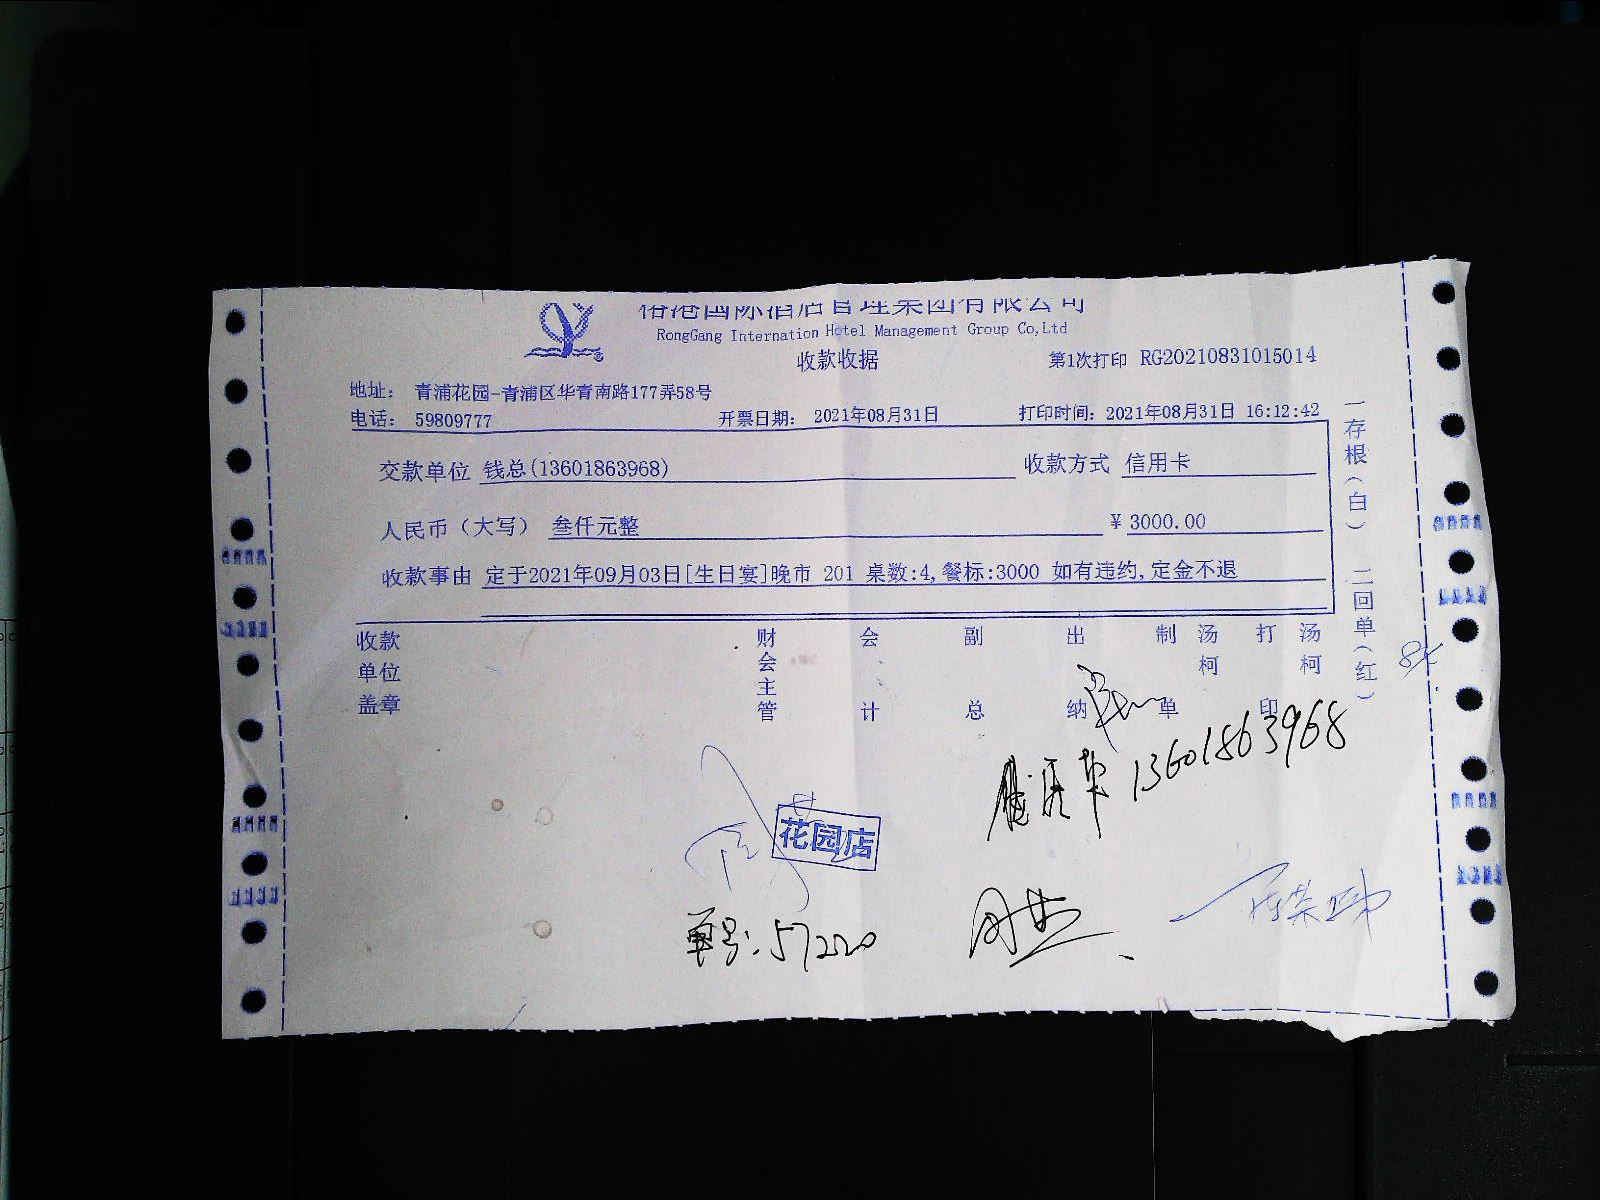 国际酒店管理集团有限公司
RongGang Internation Hotel Management Group Co,Ltd
收款收据 第1次打印 RG20210831015014
地址: 青浦花园-青浦区华青南路177弄58号
电话: 59809777 开票日期: 2021年08月31日 打印时间: 2021年08月31日 16:12:42
交款单位 钱总(13601863968) 收款方式 信用卡
人民币(大写) 叁仟元整 ¥ 3000.00
收款事由 定于2021年09月03日[生日宴]晚市 201 桌数:4,餐标:3000 如有违约,定金不退
一存根(白) 二回单(红)
收款单位盖章 财会主管 会计 副总 出纳 制单 汤柯 打印 汤柯
13601863968
花园店
单号:57220